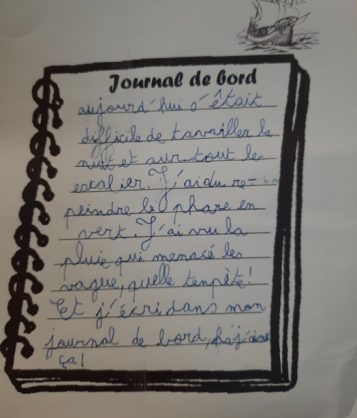 Journal de bord
aujourd'hui s'était
difficile de tavailler la
nuit et sur tout le
escal ier. J'ai du re-
peindre le phare en
vert. J'ai vu la
pluie qui menacé les
vague, quelle tempête!
Et j'écri dans mon
journal de bord, j'aime
ça!